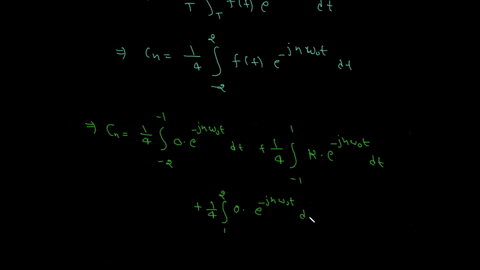 T ∫_T f(t) e dt
⇒ Cn = 1/4 ∫_{-2}^{2} f(t) e^{-jnω₀t} dt
⇒ Cn = 1/4 ∫_{-2}^{-1} 0·e^{-jnω₀t} dt + 1/4 ∫_{-1}^{1} k·e^{-jnω₀t} dt
+ 1/4 ∫_{1}^{2} 0· e^{-jnω₀t} d